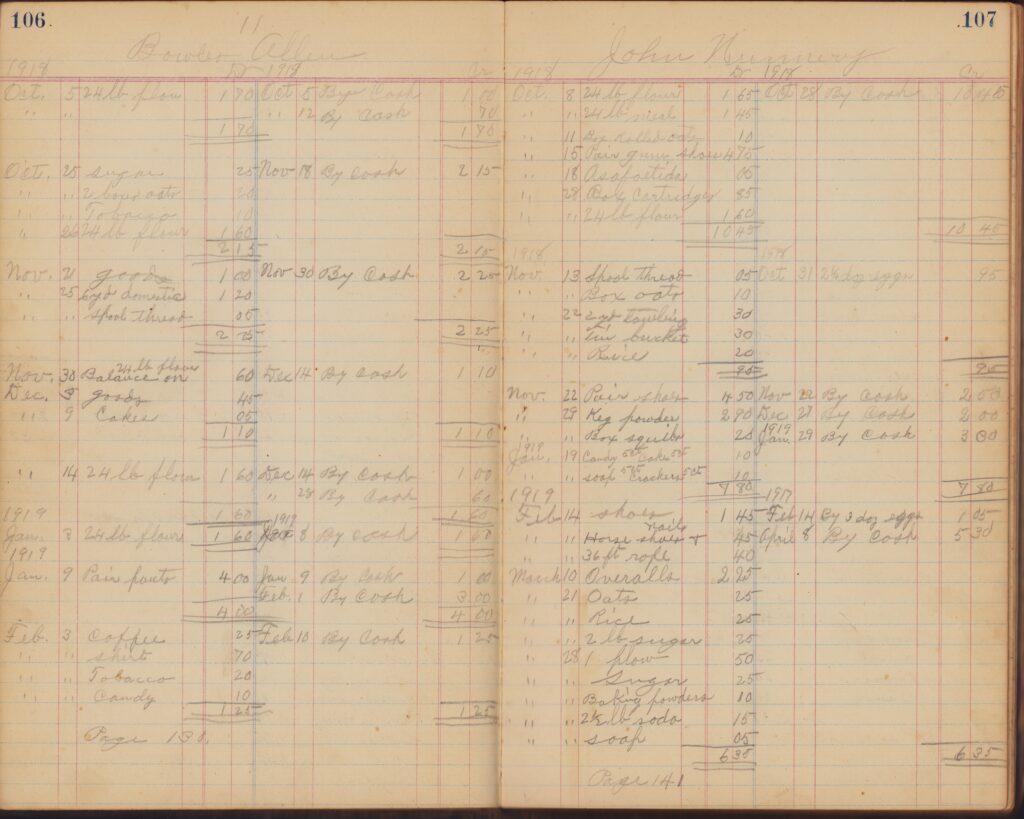 106.
11
Bowler Allen
1918 Dr 1918 Cr
Oct. 5 24 lb flour 1 70 Oct 5 By Cash 1 00
" " " 12 By Cash 70
1 70 1 70
Oct. 25 sugar 25 Nov 18 By Cash 2 15
" " 2 boxes oats 20
" " Tobacco 10
" 26 24 lb flour 1 60
2 15 2 15
Nov. 21 goods 1 00 Nov 30 By Cash 2 25
" 25 6 yd domestic 1 20
" " Spool thread 05
2 25 2 25
24 lb flour
Nov. 30 Balance on 60 Dec 14 By Cash 1 10
Dec. 3 goods 45
" 9 Cakes 05
1 10 1 10
" 14 24 lb flour 1 60 Dec 14 By Cash 1 00
" 28 By Cash 60
1919 1 60 1919 1 60
Jan. 3 24 lb flour 1 60 Jan 8 By Cash 1 60
1919
Jan. 9 Pair pants 4 00 Jan 9 By Cash 1 00
Feb. 1 By Cash 3 00
4 00 4 00
Feb. 3 Coffee 25 Feb 10 By Cash 1 25
" " Shirt 70
" " Tobacco 20
" " Candy 10
1 25 1 25
Page 130.
107
John Nunnery
1918 Dr 1918 Cr
Oct. 8 24 lb flour 1 65 Oct 28 By Cash 10 45
" " 24 lb meal 1 45
" 11 Box rolled oats 10
" 15 Pair gray shoes 4 75
" 18 Asafoetida 05
" 28 Box Cartridges 85
" " 24 lb flour 1 60
10 45 10 45
1918 1918
Nov. 13 Spool thread 05 Oct 31 2½ dz eggs 95
" " Box oats 10
" 22 2 yd towling 30
" " Tin bucket 30
" " Rice 20
95 95
Nov. 22 Pair shoes 4 50 Nov 22 By Cash 2 80
" 29 Keg powder 2 90 Dec 21 By Cash 2 00
" " Box squibs 20 1919 Jan. 29 By Cash 3 00
1919
Jan. 19 Candy 5ct Cake 5ct 10
" " soap 5ct Crackers 5ct 10
7 80 7 80
1919 1919
Feb 14 shoes 1 45 Feb 14 By 3 doz eggs 1 05
nails
" " Horse shoes + 45 April 8 By Cash 5 30
" " 36 ft rope 40
March 10 Overalls 2 25
" 21 Oats 25
" " Rice 25
" " 2 lb sugar 25
" 28 1 plow 50
" " Sugar 25
" " Baking powders 10
" " 2½ lb soda 15
" " soap 05
6 35 6 35
Page 141